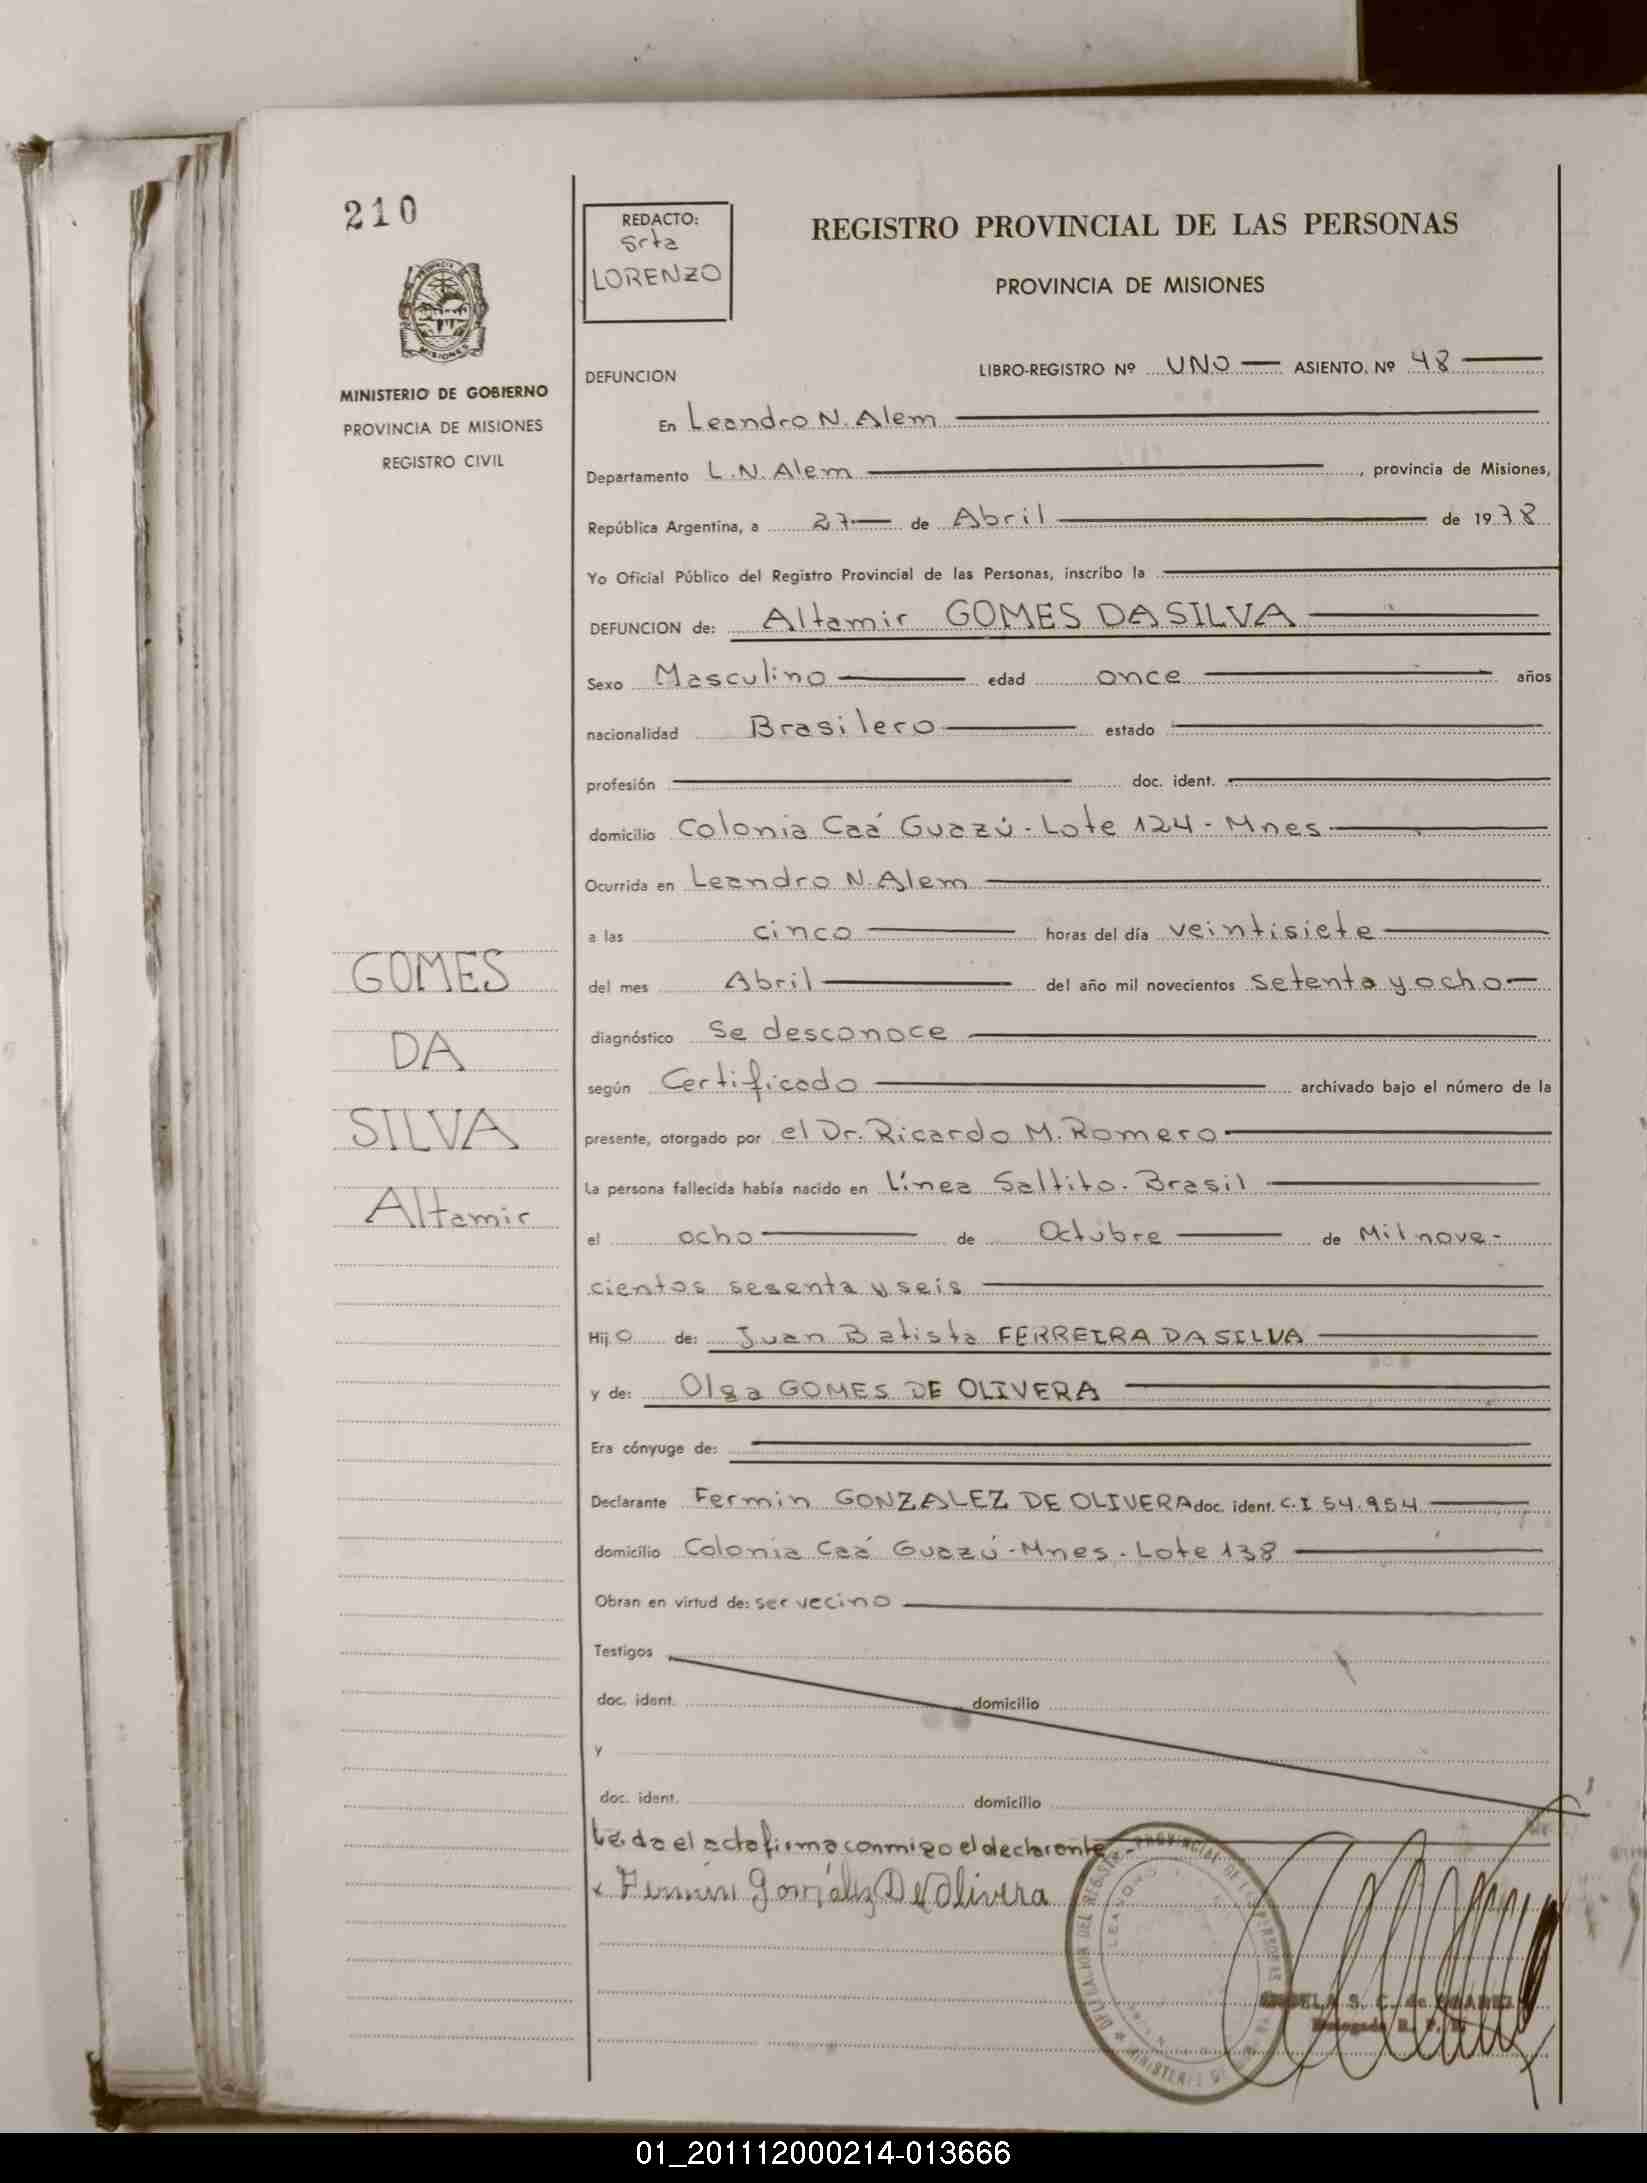 210
REDACTO:
Srta
LORENZO
REGISTRO PROVINCIAL DE LAS PERSONAS
PROVINCIA DE MISIONES
MISIONES
MINISTERIO DE GOBIERNO
PROVINCIA DE MISIONES
REGISTRO CIVIL
DEFUNCION
LIBRO-REGISTRO Nº UNO ASIENTO. Nº 48
En Leandro N. Alem
Departamento L.N. Alem, provincia de Misiones,
República Argentina, a 27 de Abril de 1978
Yo Oficial Público del Registro Provincial de las Personas, inscribo la
DEFUNCION de: Altamir GOMES DA SILVA
Sexo Masculino edad once años
nacionalidad Brasilero estado
profesión doc. ident.
domicilio Colonia Caá Guazú - Lote 124 - Mnes
Ocurrida en Leandro N. Alem
a las cinco horas del día veintisiete
del mes Abril del año mil novecientos setenta y ocho
diagnóstico Se desconoce
según Certificado archivado bajo el número de la
presente, otorgado por el Dr. Ricardo M. Romero
La persona fallecida había nacido en Línea Saltito - Brasil
el ocho de Octubre de Mil nove-
cientos sesenta y seis
Hijo de: Juan Batista FERREIRA DA SILVA
y de: Olga GOMES DE OLIVERA
Era cónyuge de:
Declarante Fermin GONZALEZ DE OLIVERA doc. ident. C.I 54.954
domicilio Colonia Caá Guazú - Mnes - Lote 138
Obran en virtud de: ser vecino
Testigos
doc. ident. domicilio
y
doc. ident. domicilio
Leida el acta firma conmigo el declarante -
Fermin González De Olivera
GOMES
DA
SILVA
Altamir
01_201112000214-013666